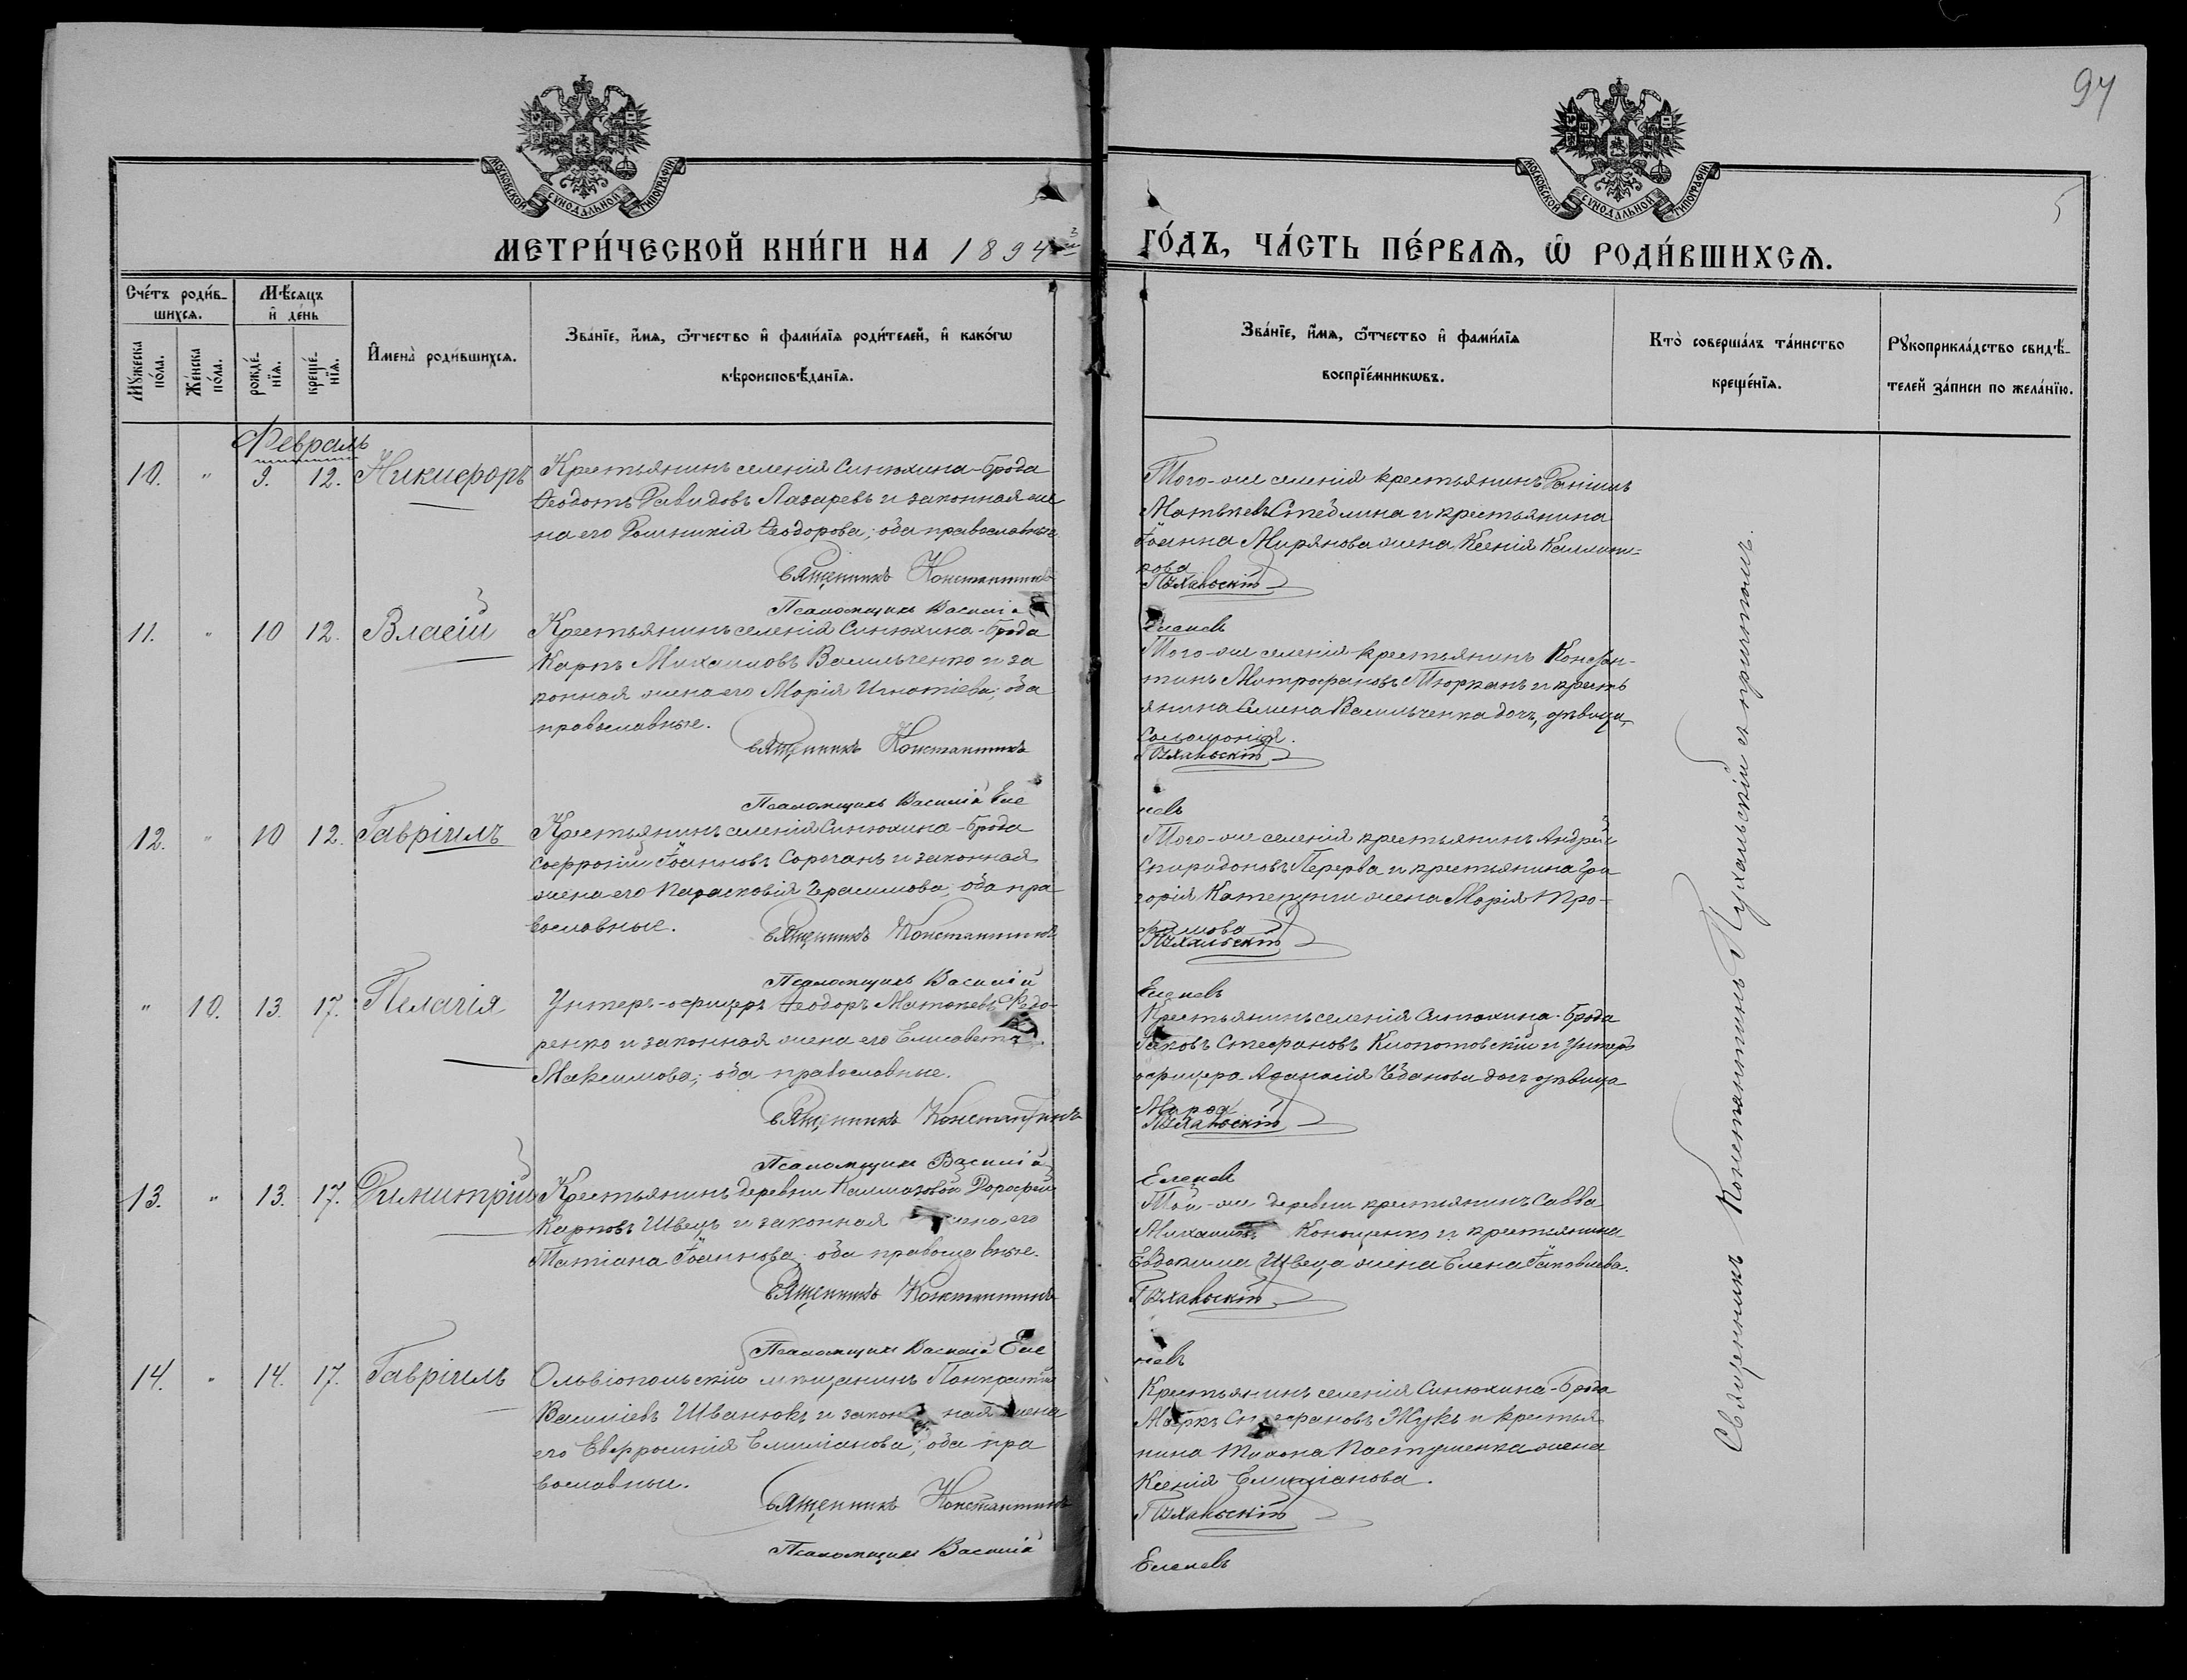 97
МОСКОВСКОЙ СУНОДАЛЬНОЙ ТИПОГРАФІИ
МОСКОВСКОЙ СУНОДАЛЬНОЙ ТИПОГРАФІИ
МЕТРИ́ЧЕСКОЙ КНИ́ГИ НА 1894 й
ГО́ДЪ, ЧА́СТЬ ПЕ́РВАѦ, Ѡ РОДИ́ВШИХСѦ.
Сче́тъ роди́в-
шихсѧ.
Мѣ́сѧцъ
и҆ де́нь
Мꙋ́жеска
по́ла.
Же́нска
по́ла.
рожде́-
нїѧ.
креще́-
нїѧ.
И҆мена̀ роди́вшихсѧ.
Зва́нїе, и҆́мѧ, ѻ҆́тчество и҆ фами́лїѧ роди́телей, и҆ како́гѡ
вѣроисповѣ́данїѧ.
Зва́нїе, и҆́мѧ, ѻ҆́тчество и҆ фами́лїѧ
воспрїе́мникѡвъ.
Кто̀ соверша́лъ та́инство
креще́нїѧ.
Рꙋкоприкла́дство свидѣ́-
телей за́писи по жела́нїю.
Февраль
10. " 9. 12. Никифоръ
Крестьянинъ селенія Синюхина-Брода
Ѳеодотъ Давидовъ Лазаревъ и законная же
на его Ѳеодорова; оба православные
Священникъ Константинъ
Псаломщикъ Василій
Того-же селенія крестьянинъ Даніилъ
Матѳеевъ и крестьянина
Іоанна Мирянова жена Ксенія
кова
Пухальскій
Еленевъ
11. " 10 12. Власій
Крестьянинъ селенія Синюхина-Брода
Карпъ Михаиловъ Васильченко и за
конная жена его Марія Игнатіева; оба
православные.
Священникъ Константинъ
Псаломщикъ Василій Еле
Того-же селенія крестьянинъ Констан-
тинъ Митрофановъ Тюрканъ и кресть
янина Семена Васильченка дочь, дѣвица
Соломонія.
Пухальскій
невъ
12. " 10 12. Гавріилъ
Крестьянинъ селенія Синюхина-Брода
Софроній Іоанновъ Сороганъ и законная
жена его Парасковія Герасимова; оба пра
вославные.
Священникъ Константинъ
Псаломщикъ Василій
Того-же селенія крестьянинъ Андрей
Спиридоновъ Перерва и крестьянина Гри
горія жена Марія Тро-
фимова
Пухальскій
Еленевъ
" 10. 13. 17. Пелагія
Унтеръ-офицеръ Ѳеодоръ Матѳеевъ Ѳедо-
ренко и законная жена его Елисавета
Максимова; оба православные.
Священникъ Константинъ
Псаломщикъ Василій
Крестьянинъ селенія Синюхина-Брода
Іаковъ Стефановъ Клопотовскій и унтеръ
офицера Аѳанасія Жданова дочь дѣвица
Марѳа
Пухальскій
Еленевъ
13. " 13. 17. Димитрій
Крестьянинъ деревни Калмазовой Дороѳей
Карповъ Швецъ и законная жена его
Татіана Іоаннова; оба православные.
Священникъ Константинъ
Псаломщикъ Василій Еле
Той-же деревни крестьянинъ Савва
Михаиловъ Кононенко и крестьянина
Евдокима Швеца жена Елена Іаковлева.
Пухальскій
невъ
14. " 14. 17. Гавріилъ
Ольвіопольскій мѣщанинъ Панкратій
Василіевъ Иванюкъ и законная жена
его Евфросинія Емиліанова; оба пра
вославные.
Священникъ Константинъ
Псаломщикъ Василій
Крестьянинъ селенія Синюхина-Брода
Маркъ Стефановъ Жукъ и крестья
нина Тихона Пастушенка жена
Ксенія Емиліанова.
Пухальскій
Еленевъ
Священникъ Константинъ Пухальскій и причтомъ.